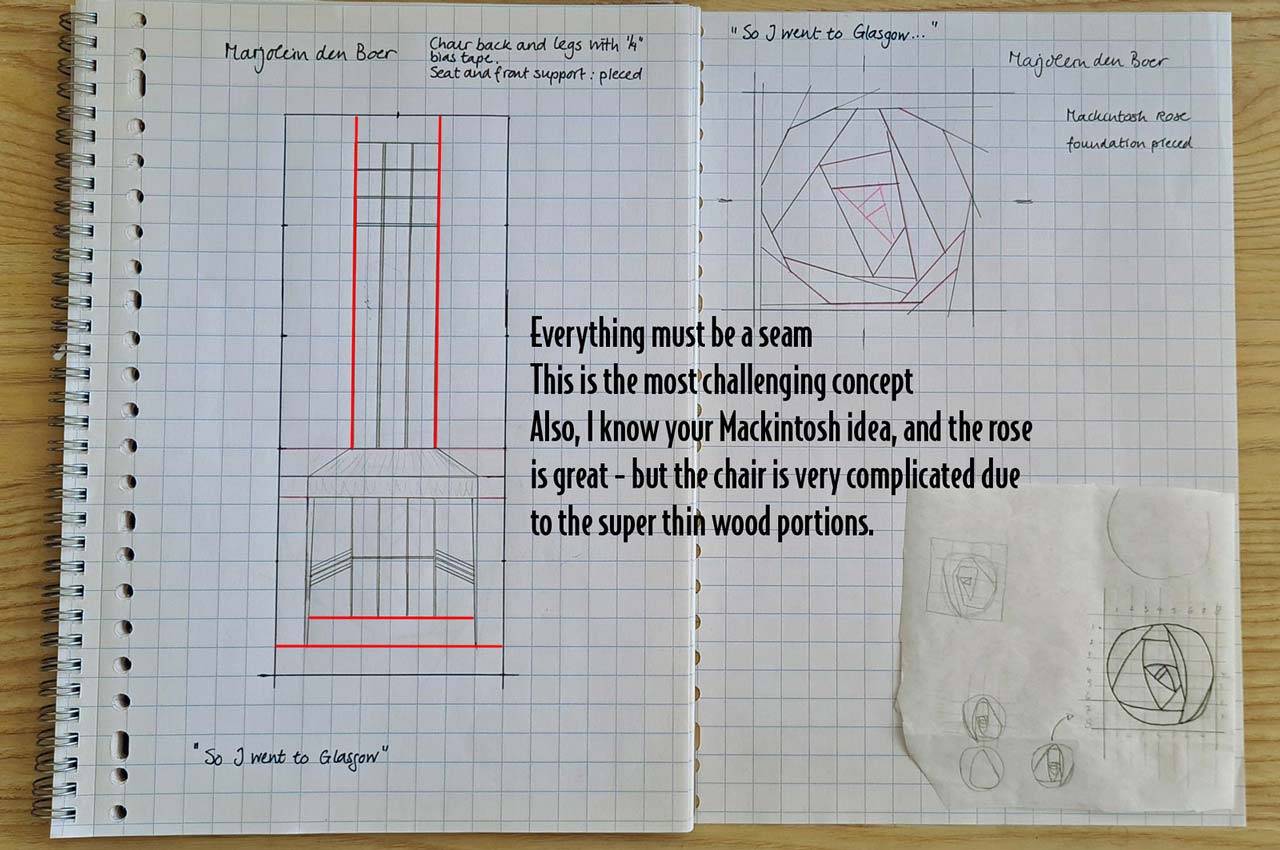 Marjolein den Boer
Chair back and legs with 1/4"
bias tape.
Seat and front support : pieced
"So I went to Glasgow"
"So I went to Glasgow..."
Marjolein den Boer
Mackintosh Rose
foundation pieced
Everything must be a seam
This is the most challenging concept
Also, I know your Mackintosh idea, and the rose
is great - but the chair is very complicated due
to the super thin wood portions.